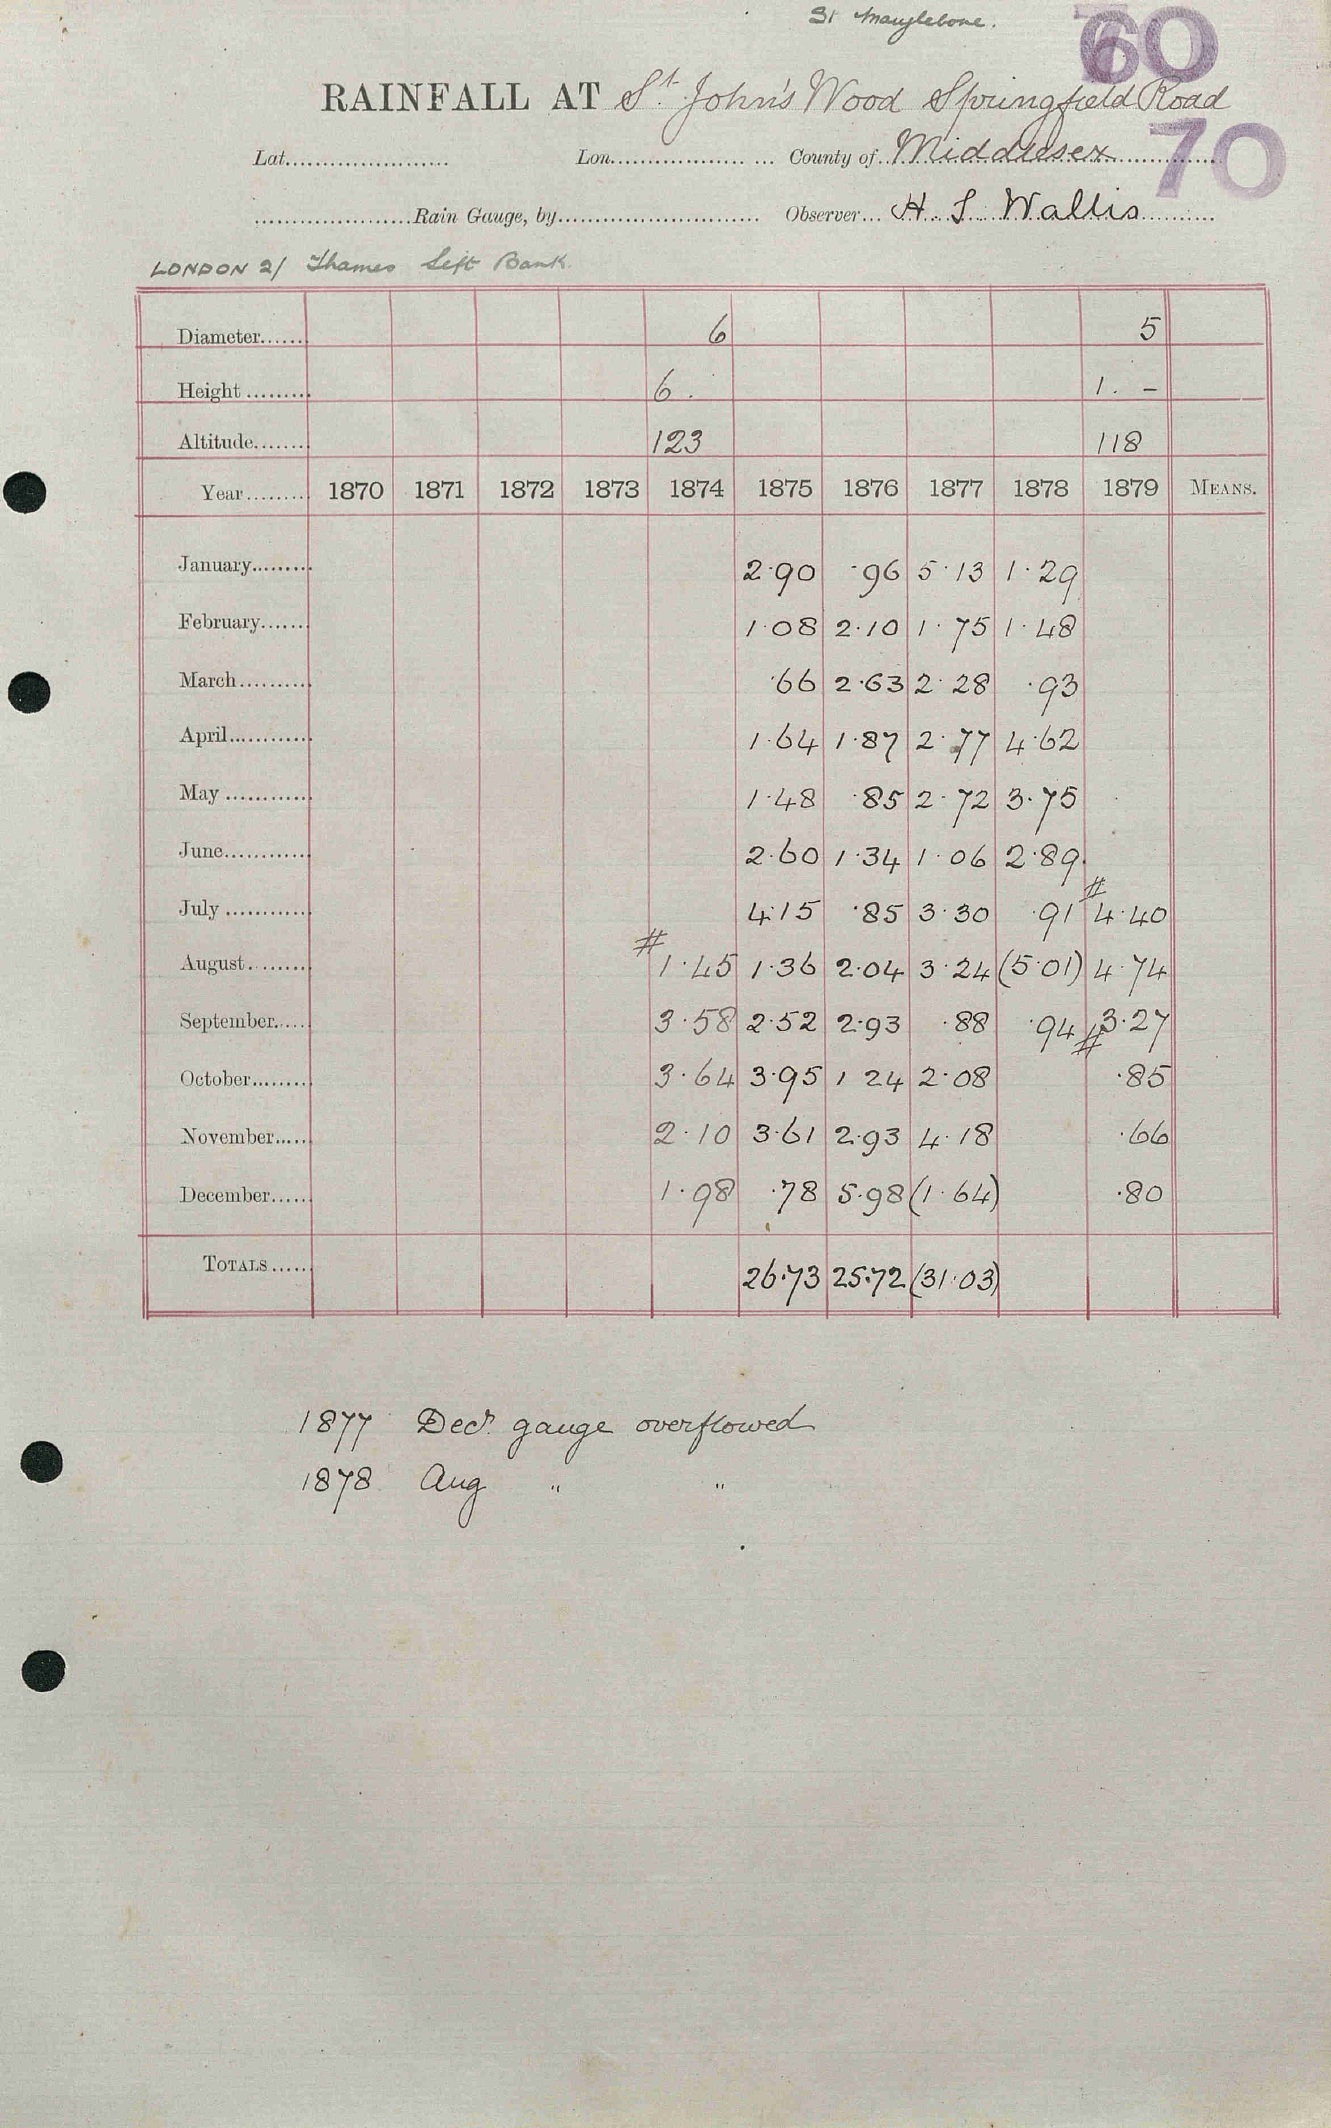 St Marylebone.
60
RAINFALL AT St. John's Wood Springfield Road
70
Lat...................... Lon...................... County of Middlesex
.....................Rain Gauge, by............................ Observer... H. S. Wallis
LONDON 2/ Thames Left Bank.
Diameter...... 6 5
Height ......... 6. 1. -
Altitude....... 123 118
Year........ 1870 1871 1872 1873 1874 1875 1876 1877 1878 1879 MEANS.
January......... 2.90 .96 5.13 1.29
February....... 1.08 2.10 1.75 1.48
March.......... .66 2.63 2.28 .93
April............ 1.64 1.87 2.77 4.62
May ............ 1.48 .85 2.72 3.75
June............ 2.60 1.34 1.06 2.89
July ............ 4.15 .85 3.30 .91 # 4.40
August......... # 1.45 1.36 2.04 3.24 (5.01) 4.74
September..... 3.58 2.52 2.93 .88 .94 3.27
October........ 3.64 3.95 1.24 2.08 # .85
November..... 2.10 3.61 2.93 4.18 .66
December..... 1.98 .78 5.98 (1.64) .80
TOTALS ..... 26.73 25.72 (31.03)
1877 Decr. gauge overflowed
1878 Aug " "